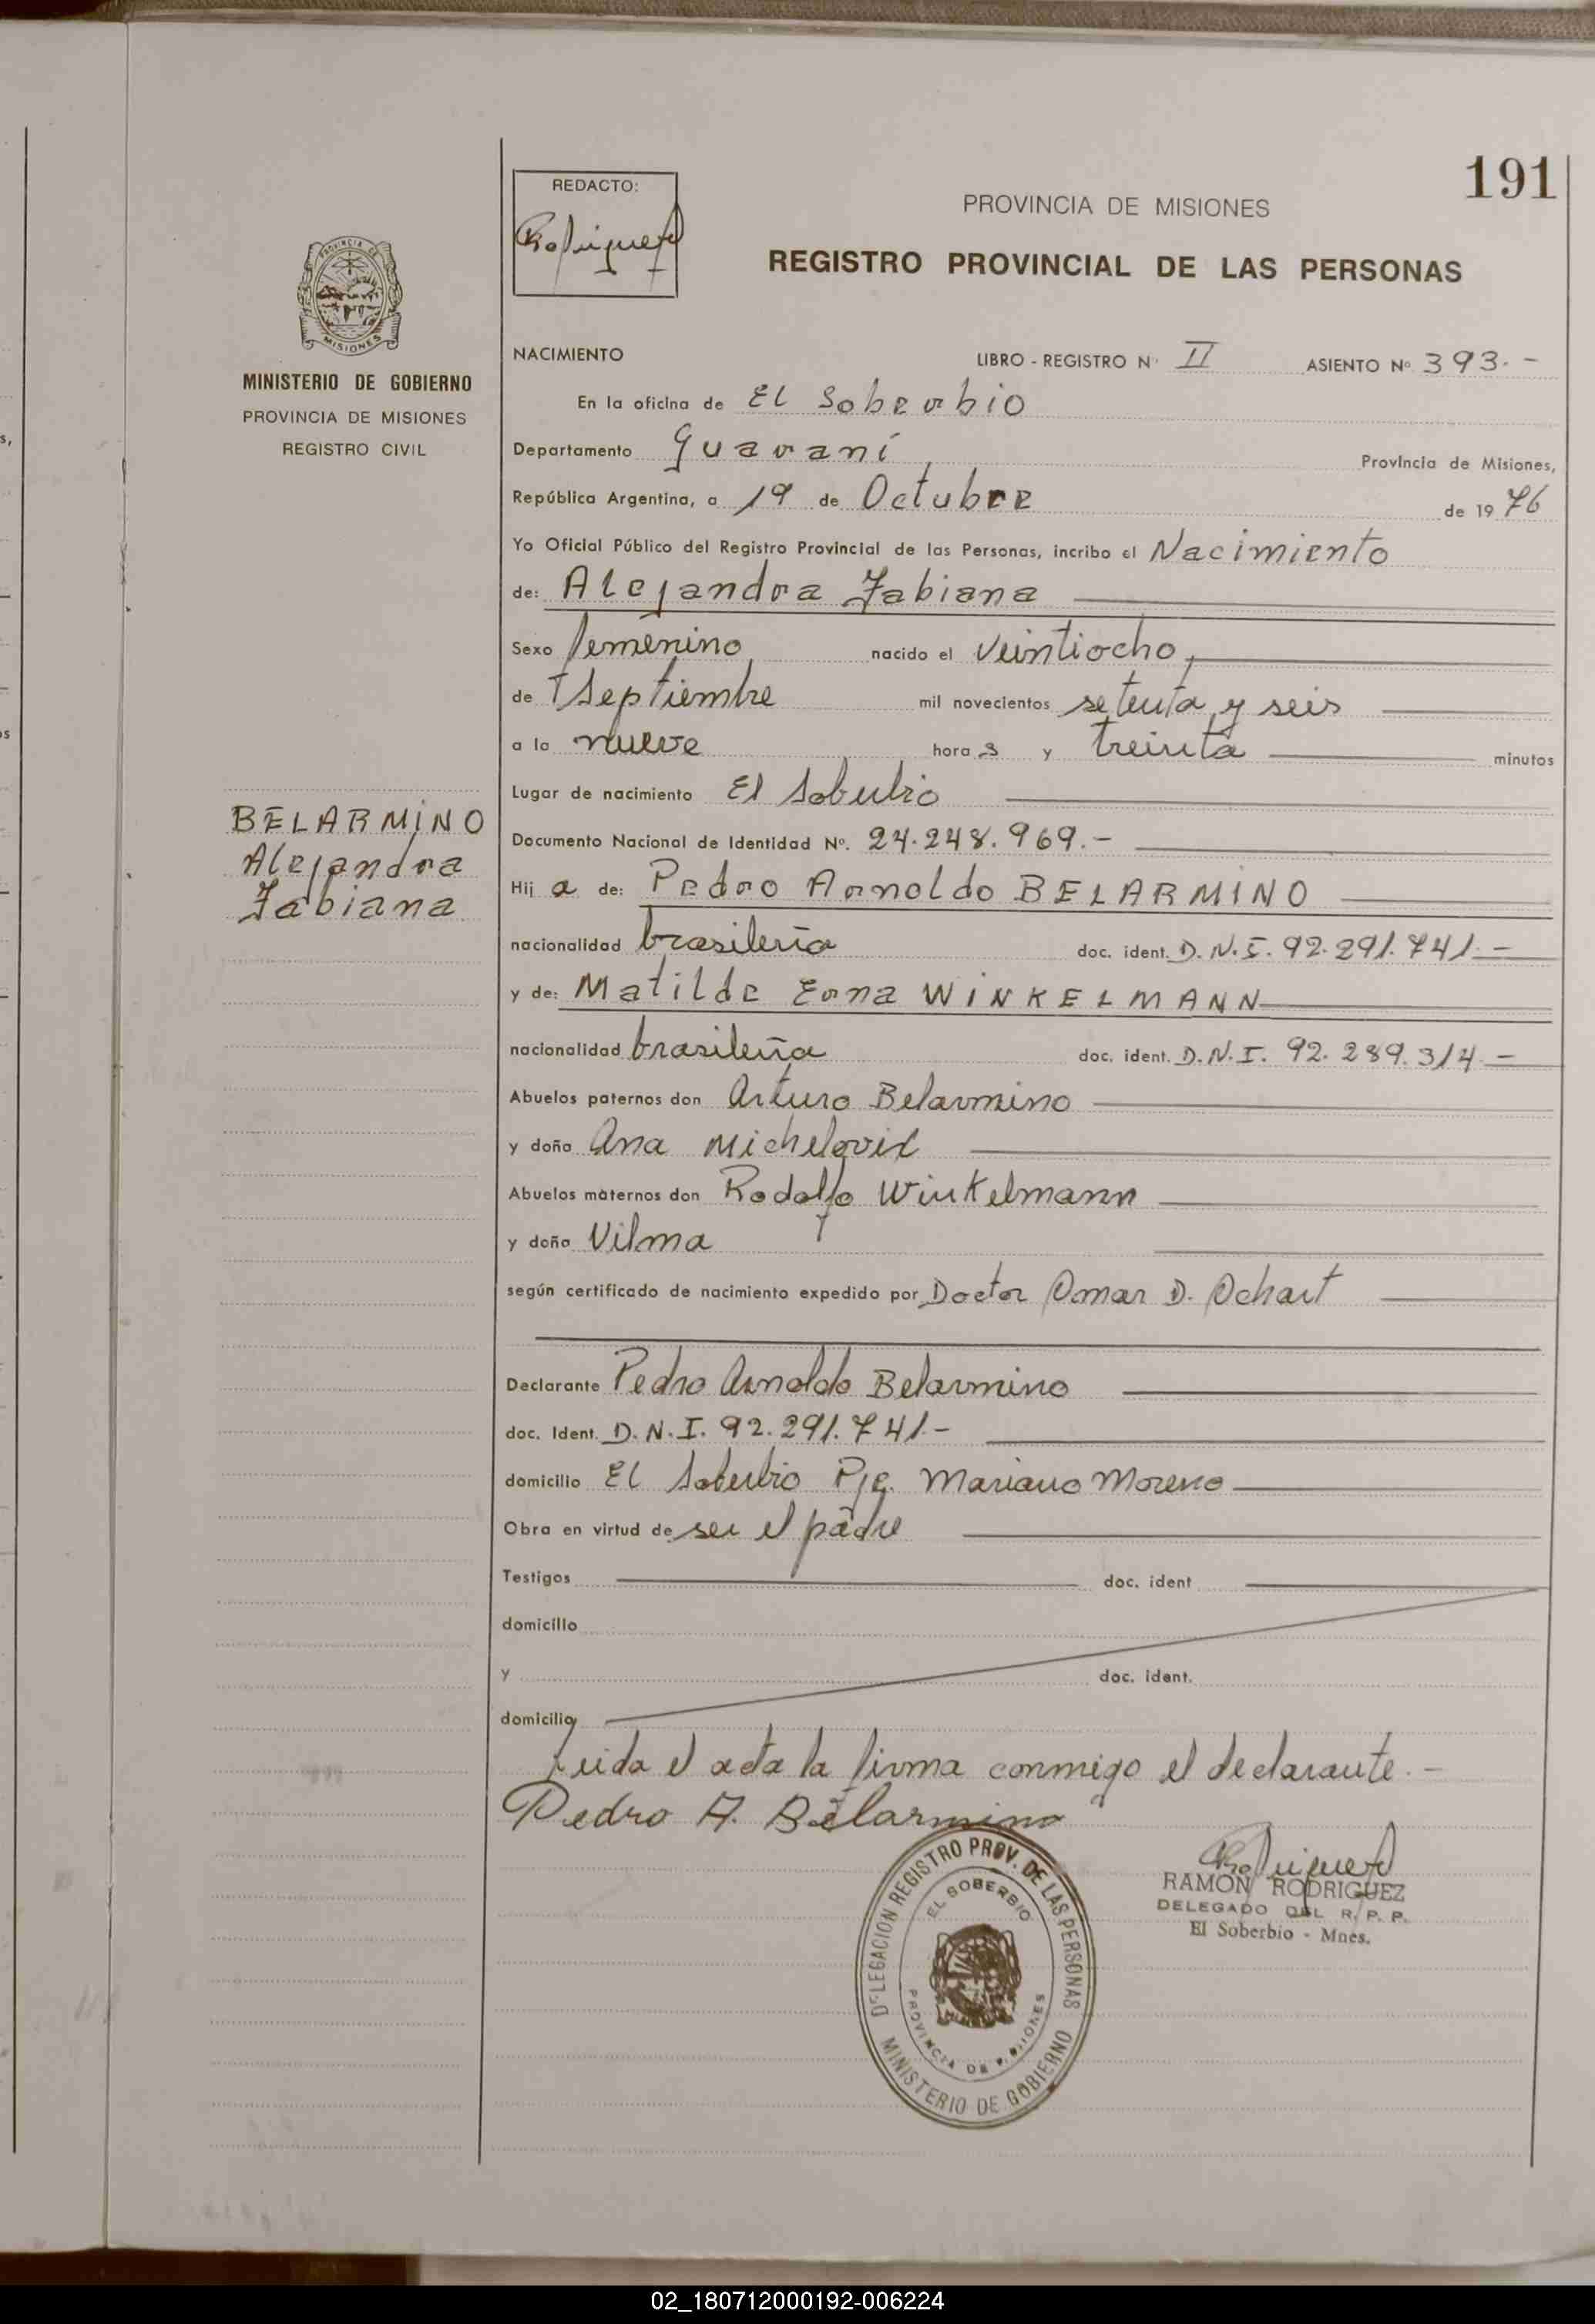 191
REDACTO:
Rodriguez
PROVINCIA DE MISIONES
REGISTRO PROVINCIAL DE LAS PERSONAS
PROVINCIA DE MISIONES
MINISTERIO DE GOBIERNO
PROVINCIA DE MISIONES
REGISTRO CIVIL
NACIMIENTO LIBRO - REGISTRO Nº II ASIENTO Nº 393.-
En la oficina de El Soberbio
Departamento Guaraní Provincia de Misiones,
República Argentina, a 19 de Octubre de 1976
Yo Oficial Público del Registro Provincial de las Personas, incribo el Nacimiento
de: Alejandra Fabiana
Sexo femenino nacido el veintiocho,
de Septiembre mil novecientos setenta y seis
a la nueve hora s y treinta minutos
Lugar de nacimiento El Soberbio
BELARMINO
Alejandra
Fabiana
Documento Nacional de Identidad Nº. 24.248.969.-
Hij a de: Pedro Arnoldo BELARMINO
nacionalidad brasileña doc. ident. D.N.I. 92.291.741.-
y de: Matilde Erna WINKELMANN
nacionalidad brasileña doc. ident. D.N.I. 92.289.314.-
Abuelos paternos don Arturo Belarmino
y doña Ana
Abuelos maternos don Rodolfo Winkelmann
y doña Vilma
según certificado de nacimiento expedido por Doctor Omar D. Ochart
Declarante Pedro Arnoldo Belarmino
doc. Ident. D.N.I. 92.291.741.-
domicilio El Soberbio Pje. Mariano Moreno
Obra en virtud de ser el padre
Testigos doc. ident
domicilio
y doc. ident.
domicilio
Leida el acta la firma conmigo el declarante.-
Pedro A. Belarmino
DELEGACION REGISTRO PROV. DE LAS PERSONAS
EL SOBERBIO
PROVINCIA DE MISIONES
MINISTERIO DE GOBIERNO
Rodriguez
RAMON RODRIGUEZ
DELEGADO DEL R. P. P.
El Soberbio - Mnes.
02_180712000192-006224